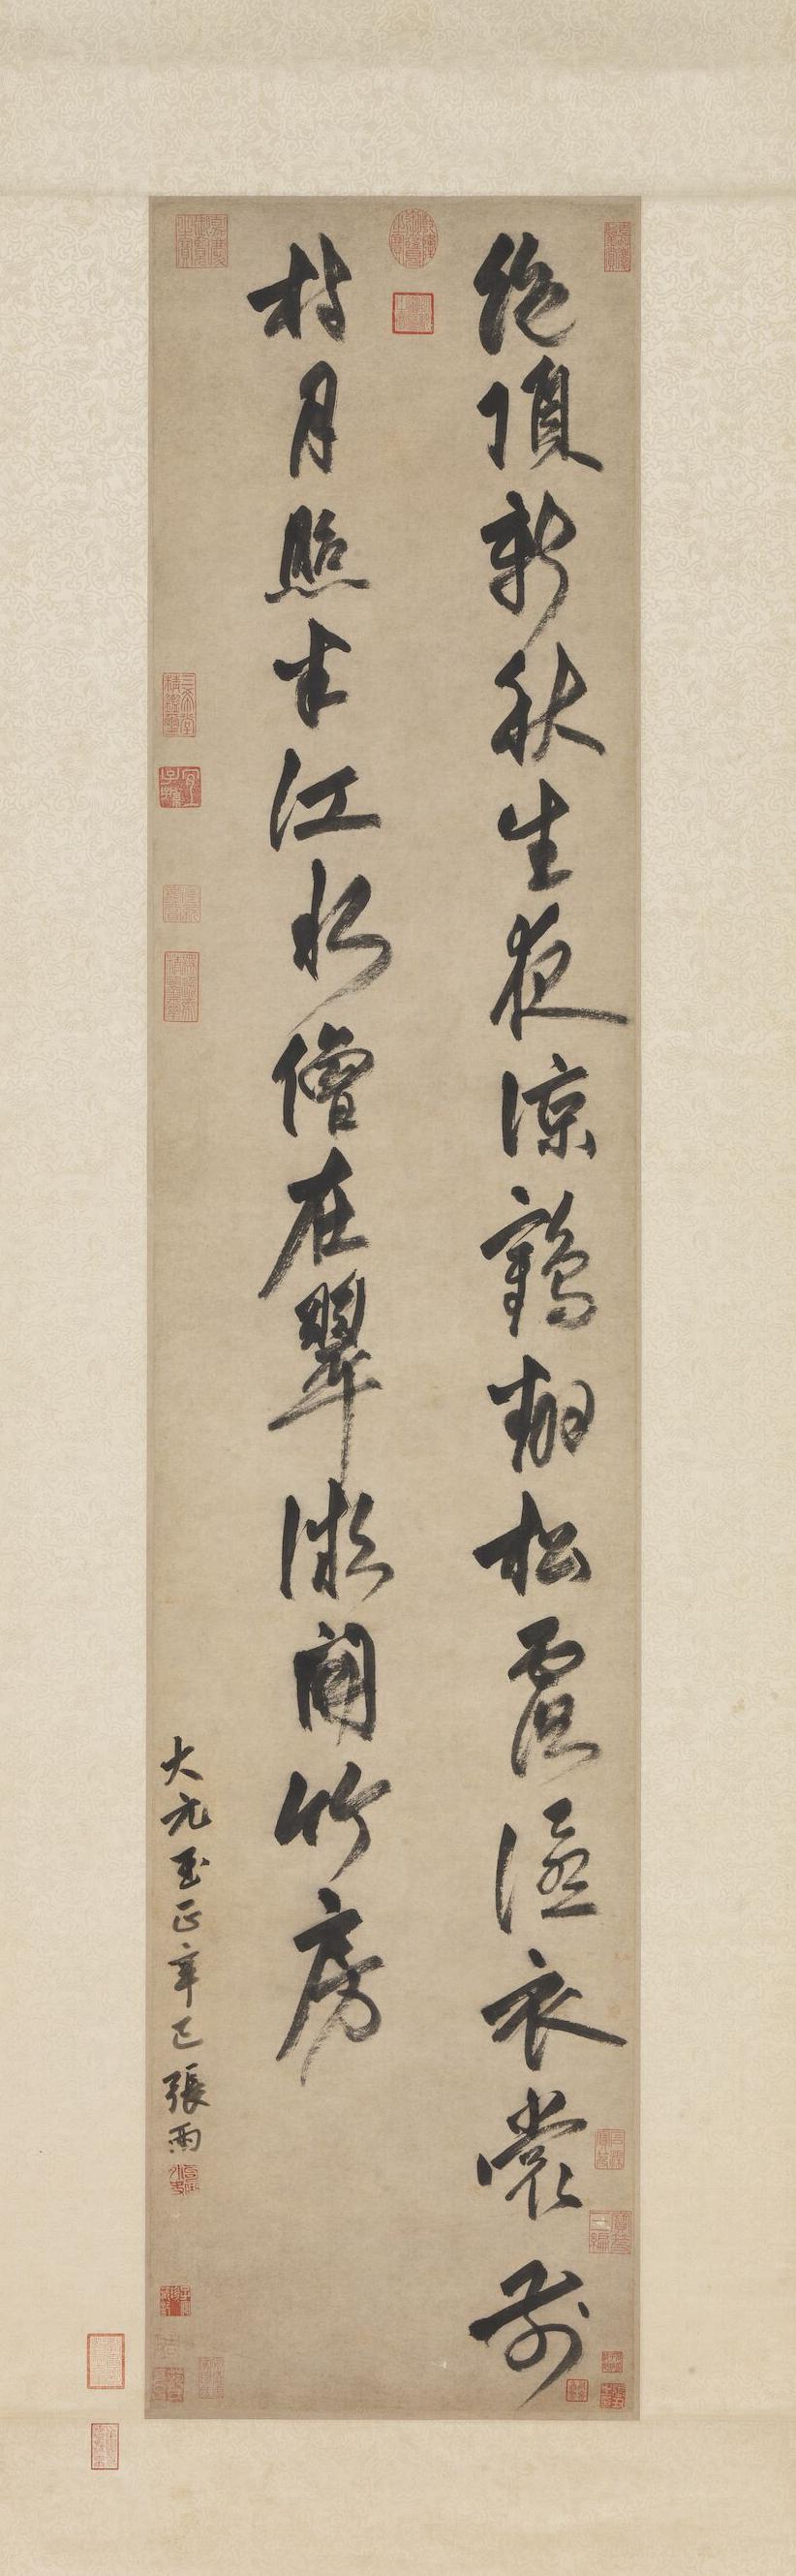 絶頂新秋生夜涼鶴翻松露溼衣裳前
村月照半江水僧在翠微開竹房
大元至正辛巳張雨